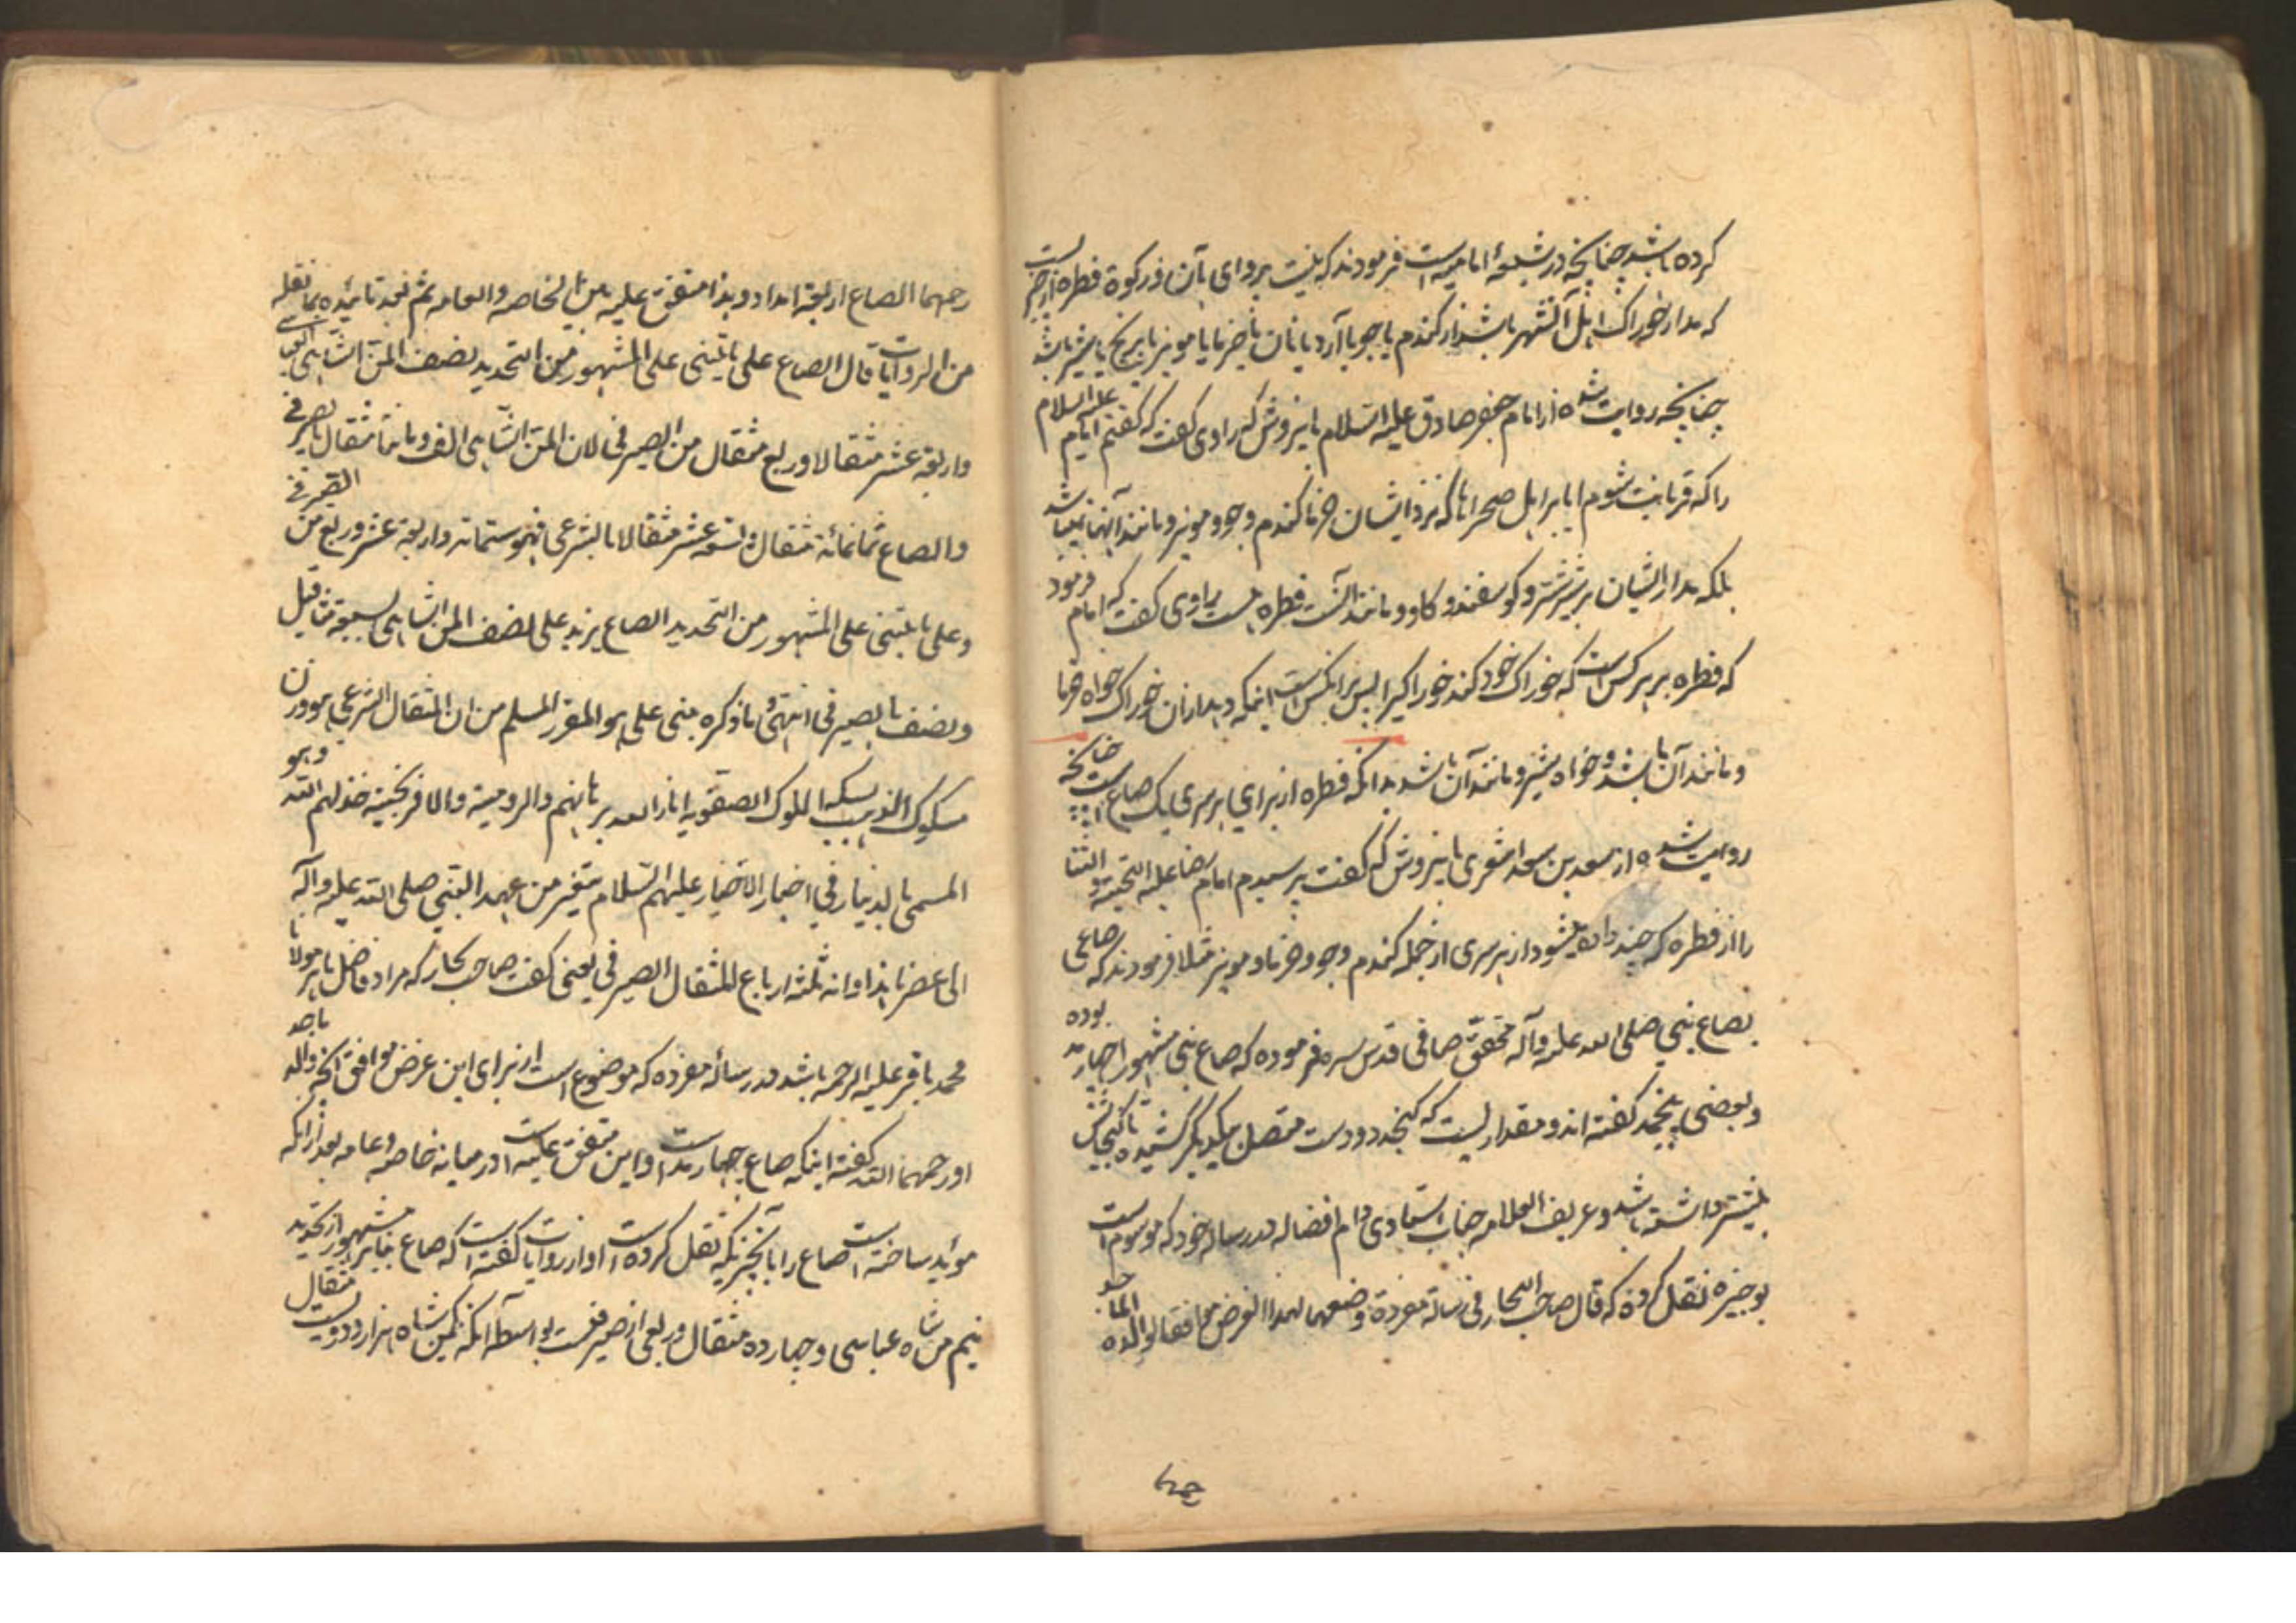 کرده باشد چنانچه در شیعهٔ امامیه است فرمودند که نیست پروای بآن در زکوة فطره از چیزیست
که مدار خوراک اهل آنشهر باشد از گندم یا جو یا آرد یا نان یا خرما یا مویز یا برنج یا شیر باشد
چنانچه روایت شده از امام جعفر صادق علیه السلام باینروش که راوی گفت که گفتم امام علیه السلام
را که قربانت شوم ایا بر اهل صحراها که نزد ایشان خرما گندم و جو و مویز و مانند آنها نمیباشد
بلکه مدار ایشان بر شیر شتر و گوسفند و گاو و مانند آنست فطره هست راوی گفت که امام فرمود
که فطره بر هر کس است که خوراک خود کند خوراکیرا پس بر آنکس است اینکه دهد از آن خوراک خواه خرما
و مانند آن باشد و خواه شیر و مانند آن باشد بدانکه فطره از برای هر سری یک صاع است چنانچه
روایت شده از سعد بن سعد اشعری باینروش که گفت پرسیدم امام رضا علیه التحیة و الثنا
را از فطره که چند داده میشود از هر سری از جمله گندم و جو و خرما و مویز مثلا فرمودند که صاعی
بصاع نبی صلی الله علیه و آله محقق صافی قدس سره فرموده که صاع نبی مشهور چهار مد بوده
و بعضی پنجمد گفته اند و مقداریست که گنجد دو دست متصل بیکدیگر کشیده تا گنجایش
بیشتر داشته باشد و عریف العلامه جناب استادی دام افضاله در رساله خود که موسوم است
بوجیزه نقل کرده که قال صاحب البحار فی رسالة مفردة وضعها لهذا الغرض موافقا لوالده الماجد
رحمهما الصاع اربعة امداد و هذا متفق علیه من بین الخاصه و العامه ثم نجد تائیده بما نقله
من الروایات قال الصاع علی ما یبتنی علی المشهور من التحدید نصف المن الشاهی العباسی
و اربعة عشر مثقالا و ربع مثقال من الصیرفی لان المن الشاهی الف و مائتا مثقال بالصیرفی
و الصاع ثمانمائة مثقال و تسعه عشر مثقالا بالشرعی فهو ستمائه و اربعة عشر و ربع من الصیرفی
و علی ما یبتنی علی المشهور من التحدید الصاع یزید علی نصف المن الشاهی بسبعة مثاقیل
و نصف بالصیرفی انتهی و ما ذکره مبنی علی هو المقرر المسلم من ان المثقال الشرعی هو وزن
مسکوک الذهب بسکه الملوک الصفویه انار الله برهانهم و الرومیة و الافرنجیة خذلهم الله و هو
المسمی بالدینار فی اخبار الاخیار علیهم السلام متغیر من عهد النبی صلی الله علیه و آله
الی عصرنا هذا و انه ثلثه ارباع المثقال الصیرفی یعنی گفت صاحب بحار که مراد فاضل ماهر مولانا
محمد باقر علیه الرحمه باشد در رسالهٔ مفرده که موضوع است از برای این غرض موافق آنچه والد ماجد
او رحمهما الله گفته اینکه صاع چهار مد است و این متفق علیه است در میانه خاصه و عامه بعد از آنکه
مؤید ساخته است صاع را بآنچیزیکه نقل کرده است او از روایات گفته است که صاع بنابر مشهور از تحدید
نیم من شاه عباسی و چهارده مثقال و ربعی از صیرفیست بواسطه آنکه یکمن شاه هزار و دویست مثقال